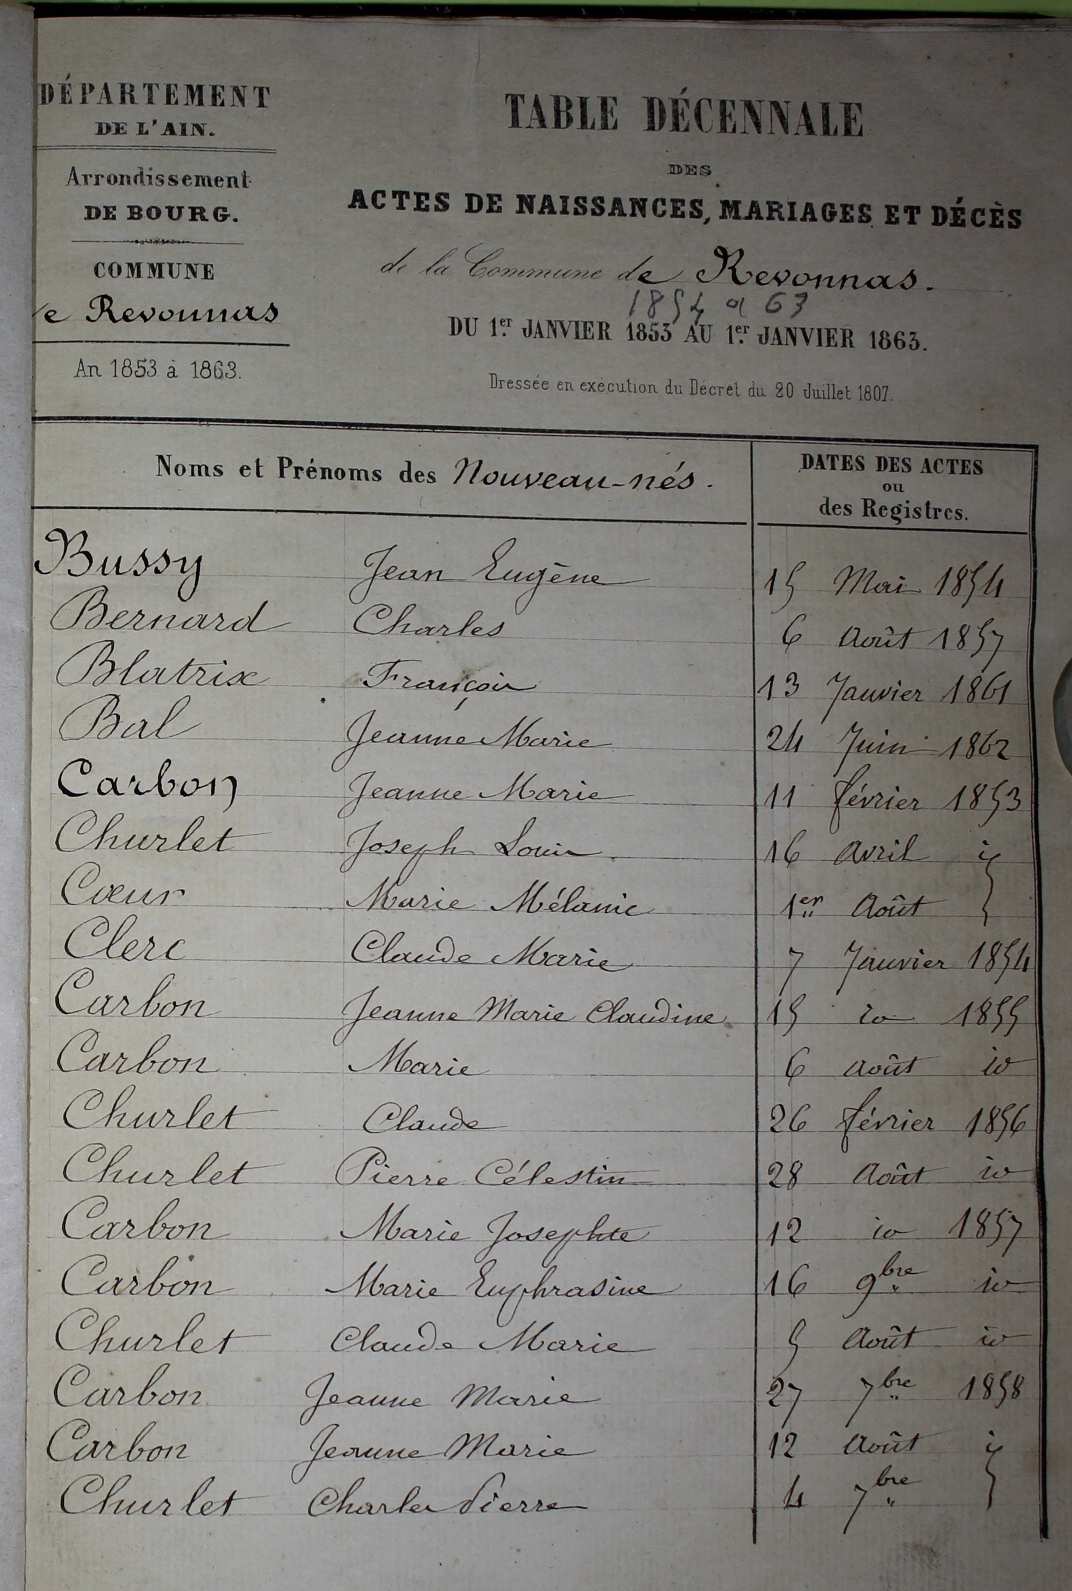 DÉPARTEMENT
DE L'AIN.
Arrondissement
DE BOURG.
COMMUNE
e Revonnas
An 1853 à 1863.
TABLE DÉCENNALE
DES
ACTES DE NAISSANCES, MARIAGES ET DÉCÈS
de la Commune de Revonnas.
1854 a 63
DU 1er JANVIER 1853 AU 1er JANVIER 1863.
Dressée en exécution du Décret du 20 Juillet 1807.
Noms et Prénoms des Nouveau-nés.
DATES DES ACTES
ou
des Registres.
Bussy Jean Eugène 15 Mai 1854
Bernard Charles 6 Août 1857
Blatrix François 13 Janvier 1861
Bal Jeanne Marie 24 Juin 1862
Carbon Jeanne Marie 11 février 1853
Churlet Joseph Louis 16 Avril
Cœur Marie Mélanie 1er Août
Clerc Claude Marie 7 Janvier 1854
Carbon Jeanne Marie Claudine 15 io 1855
Carbon Marie 6 Août io
Churlet Claude 26 février 1856
Churlet Pierre Célestin 28 Août io
Carbon Marie Josephte 12 io 1857
Carbon Marie Euphrasine 16 9bre io
Churlet Claude Marie 5 Août io
Carbon Jeanne Marie 27 7bre 1858
Carbon Jeanne Marie 12 Août
Churlet Charles Pierre 4 7bre